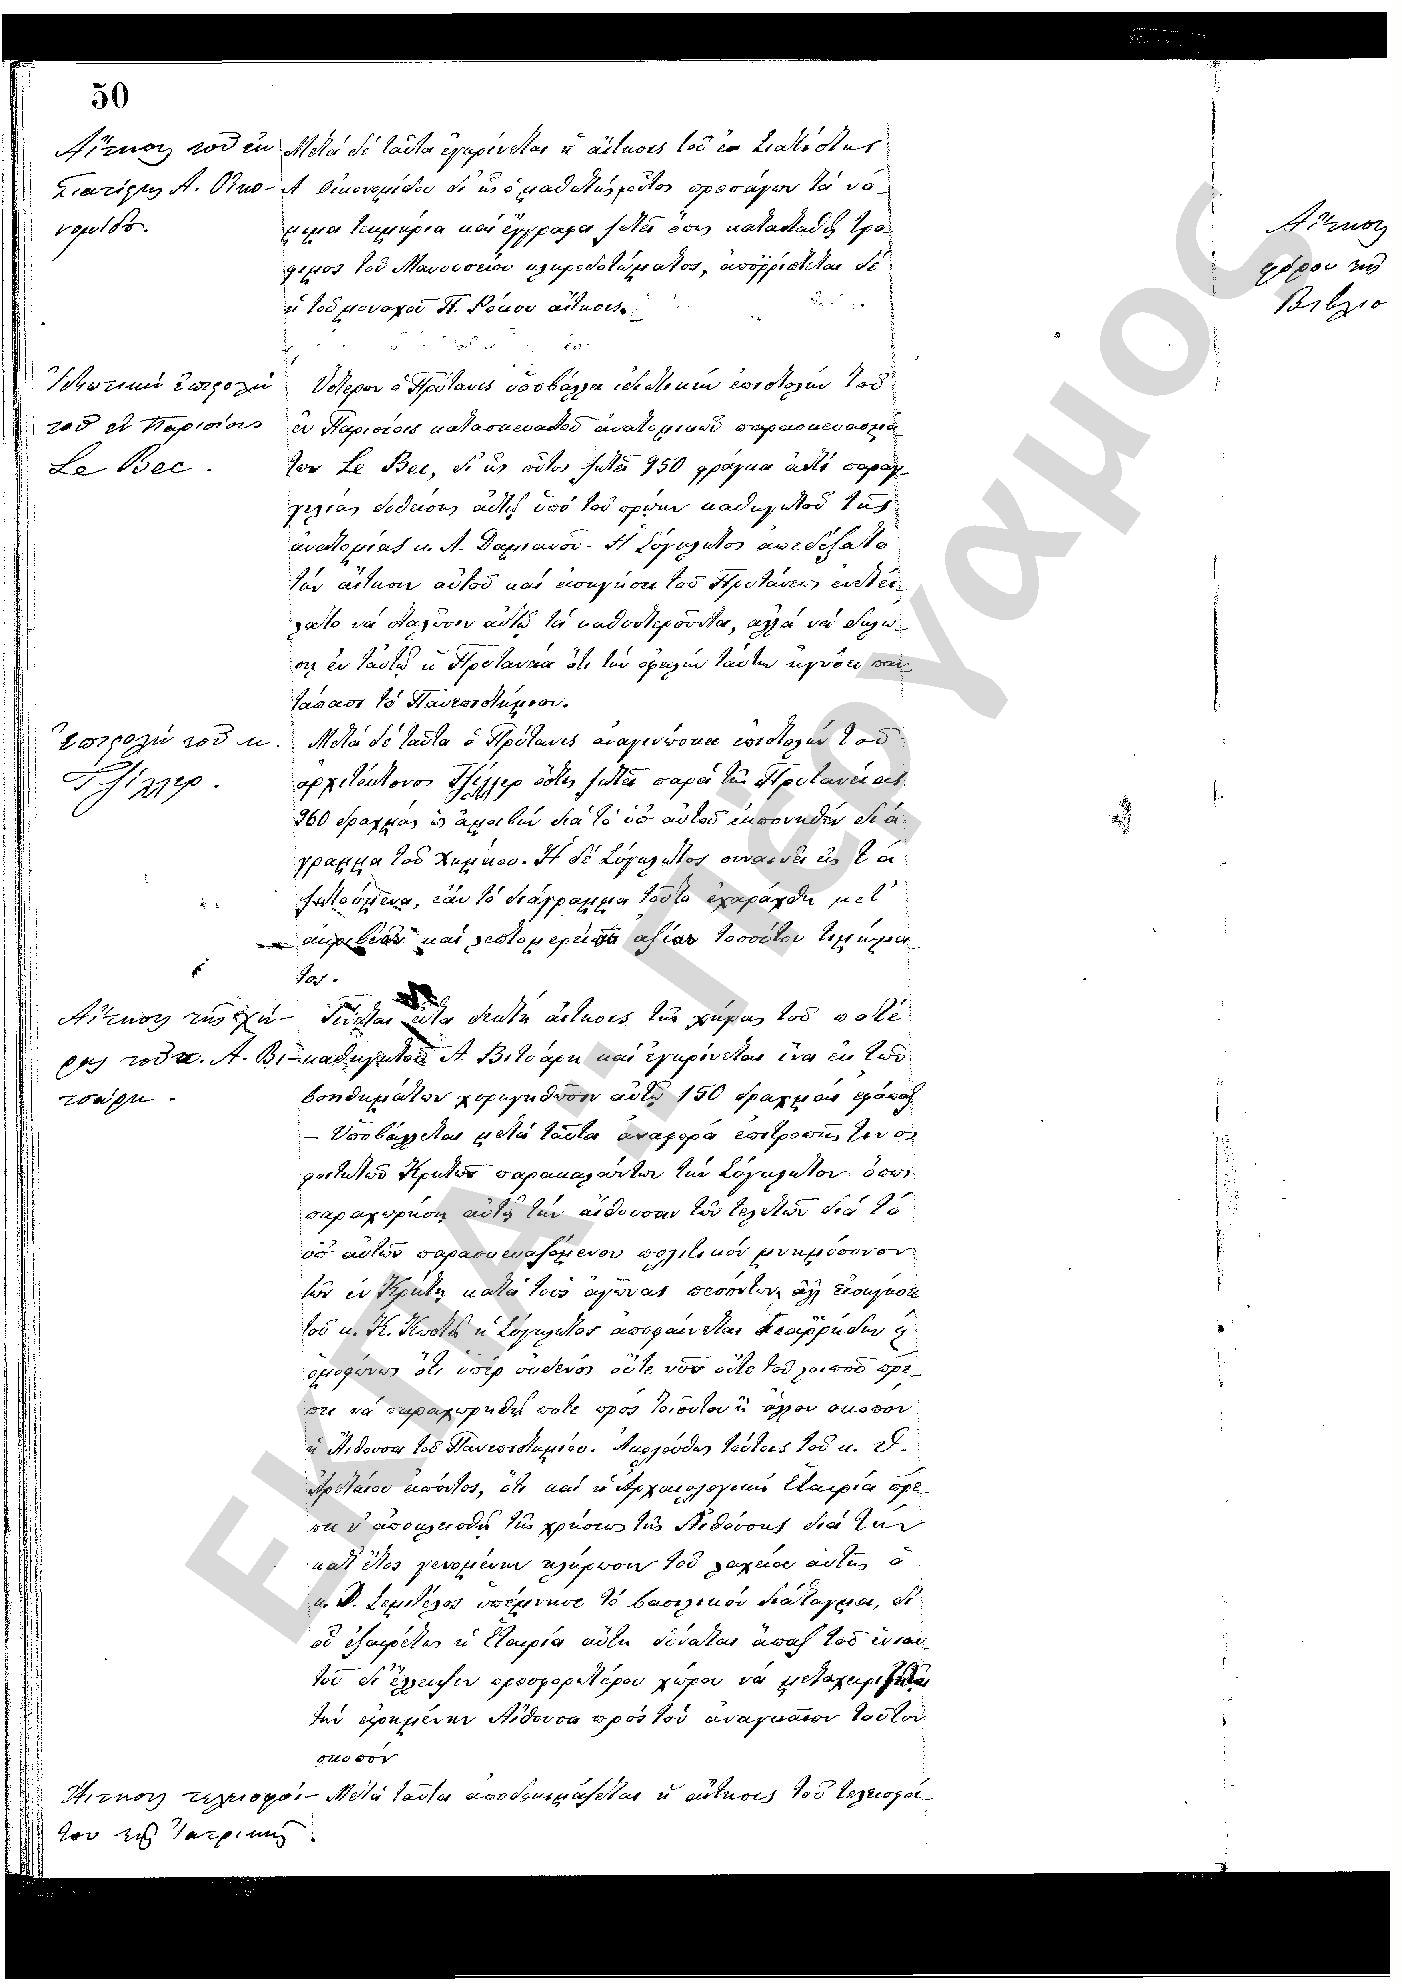 50
Αἴτησις τοῦ ἐκ
Σιατίστης Α. Οἰκο-
νομίδου.
Μετὰ δὲ ταῦτα ἐγκρίνεται ἡ αἴτησις τοῦ ἐκ Σιατίστης
Α Οἰκονομίδου δι' ἧς ὁ μαθητὴς οὗτος προσάγων τὰ νό-
μιμα τεκμήρια καὶ ἔγγραφα ζητεῖ ὅπως κατασταθῇ τρό-
φιμος τοῦ Μανουσείου κληροδοτήματος, ἀπορρίπτεται δὲ
ἡ τοῦ μοναχοῦ Π. Ρόκου αἴτησις.
Ἰδιωτικὴ ἐπιστολὴ
τοῦ ἐν Παρισίοις
Le Bec.
Ὕστερον ὁ Πρύτανις ὑποβάλλει ἰδιωτικὴν ἐπιστολὴν τοῦ
ἐν Παρισίοις κατασκευαστοῦ ἀνατομικῶν παρασκευασμά-
των Le Bec, δι' ἧς οὗτος ζητεῖ 950 φράγκα ἀντὶ παραγ-
γελίας δοθείσης αὐτῷ ὑπὸ τοῦ πρώην καθηγητοῦ τῆς
ἀνατομίας κ. Λ. Δαμιανοῦ. Ἡ Σύγκλητος ἀπεδέξατο
τὴν αἴτησιν αὐτοῦ καὶ εἰσηγήσει τοῦ Πρυτάνεως ἐνετεί-
λατο νὰ σταλῶσιν αὐτῷ τὰ καθυστεροῦντα, ἀλλὰ νὰ δηλώ-
σῃ ἐν ταὐτῷ ἡ Πρυτανεία ὅτι τὴν ὀφειλὴν ταύτην ἠγνόει παν-
τάπασι τὸ Πανεπιστήμιον.
Ἐπιστολὴ τοῦ κ.
Τζίλλερ.
Μετὰ δὲ ταῦτα ὁ Πρύτανις ἀναγινώσκει ἐπιστολὴν τοῦ
ἀρχιτέκτονος Τζίλλερ ὅστις ζητεῖ παρὰ τῆς Πρυτανείας
960 δραχμὰς ὡς ἀμοιβὴν διὰ τὸ ὑπ' αὐτοῦ ἐκπονηθὲν διά-
γραμμα τοῦ Χημείου. Ἡ δὲ Σύγκλητος συναινεῖ εἰς τὰ
ζητούμενα, ἐὰν τὸ διάγραμμα τοῦτο ἐχαράχθη μετ'
ἀκριβείας καὶ λεπτομερείας ἀξίας τοσούτου τιμήμα-
τος.
Αἴτησις τῆς χή-
ρας τοῦ κ. Α. Βι-
τσάρη.
Γίνεται εἶτα δεκτὴ αἴτησις τῆς χήρας τοῦ ποτὲ
καθηγητοῦ Α. Βιτσάρη καὶ ἐγκρίνεται ἵνα ἐκ τῶν
βοηθημάτων χορηγηθῶσιν αὐτῇ 150 δραχμαὶ ἐφάπαξ
— Ὑποβάλλεται μετὰ ταῦτα ἀναφορὰ ἐπιτροπῆς τῶν
φοιτητῶν Κρητῶν παρακαλούντων τὴν Σύγκλητον ὅπως
παραχωρήσῃ αὐτοῖς τὴν αἴθουσαν τῶν τελετῶν διὰ τὸ
ὑπ' αὐτῶν παρασκευαζόμενον πολιτικὸν μνημόσυνον
τῶν ἐν Κρήτῃ κατὰ τοὺς ἀγῶνας πεσόντων, ἀλλ' εἰσηγήσει
τοῦ κ. Κ. Κωστῆ ἡ Σύγκλητος ἀποφαίνεται διαρρήδην
ὁμοφώνως ὅτι ὑπὲρ οὐδενὸς οὔτε νῦν οὔτε τοῦ λοιποῦ πρέ-
πει νὰ παραχωρηθῇ ποτε πρὸς τοιοῦτον ἢ ἄλλον σκοπὸν
ἡ Αἴθουσα τοῦ Πανεπιστημίου. Ἀκολούθως τούτοις τοῦ κ. Θ.
Ἀρεταίου εἰπόντος, ὅτι καὶ ἡ Ἀρχαιολογικὴ Ἑταιρία πρέ-
πει ν' ἀποκλεισθῇ τῆς χρήσεως τῆς Αἰθούσης διὰ τὴν
κατ' ἔτος γενομένην κλήρωσιν τοῦ λαχείου αὐτῆς ὁ
κ. Δ. Σεμιτέλος ὑπέμνησε τὸ βασιλικὸν διάταγμα, δι'
οὗ ἐξαιρέτως ἡ Ἑταιρία αὕτη δύναται ἅπαξ τοῦ ἐνιαυ-
τοῦ δι' ἔλλειψιν προσφορωτέρου χώρου νὰ μεταχειρίζηται
τὴν εἰρημένην Αἴθουσα πρὸς τὸν ἀναγκαῖον τοῦτον
σκοπόν
Αἴτησις τελειοφοί-
του τῆς Ἰατρικῆς.
Μετὰ ταῦτα ἀποδοκιμάζεται ἡ αἴτησις τοῦ τελειοφοί-
Αἴτησις
φόρου τῆς
Βιβλιο
ΕΚΠΑ :: Πέργαμος